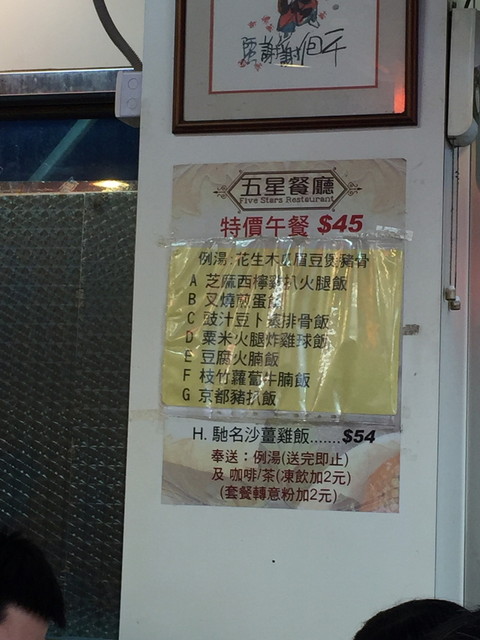 五星餐廳
Five Stars Restaurant
特價午餐 $45
例湯:花生木瓜眉豆煲豬骨
A 芝麻西檸雞扒火腿飯
B 叉燒煎蛋飯
C 豉汁豆卜蒸排骨飯
D 粟米火腿炸雞球飯
E 豆腐火腩飯
F 枝竹蘿蔔牛腩飯
G 京都豬扒飯
H. 馳名沙薑雞飯.......$54
奉送：例湯(送完即止)
及 咖啡/茶(凍飲加2元)
(套餐轉意粉加2元)